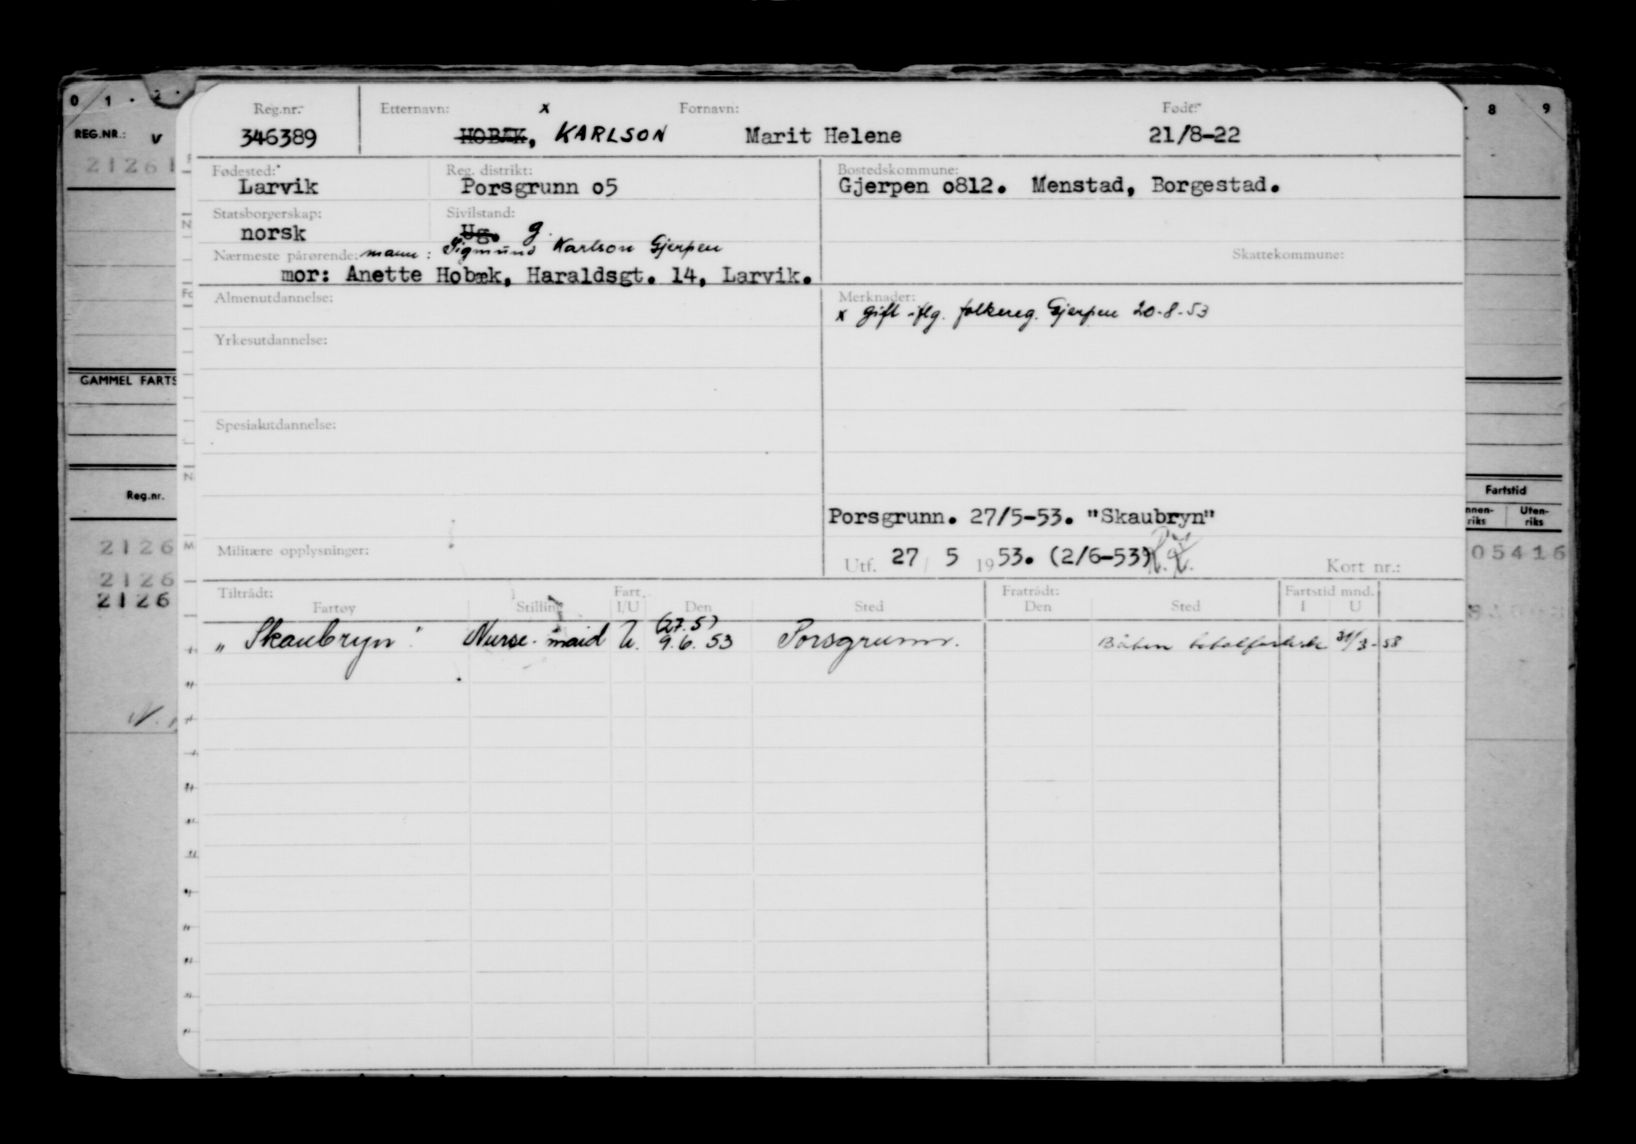 0 1 . 2 .
. 8 9
REG.NR.: v
21261
GAMMEL FARTS
Reg.nr.
2126
2126
2126
Fartstid
nnen-riks Uten-riks
05416
Reg.nr. Etternavn: x Fornavn: Født:
346389 HOBÆK, KARLSON Marit Helene 21/8-22
Fødested: Reg. distrikt: Bostedskommune:
Larvik Porsgrunn o5 Gjerpen o812. Menstad, Borgestad.
Statsborgerskap: Sivilstand:
norsk Ug. g.
Nærmeste pårørende: mann: Sigmund Karlson Gjerpen Skattekommune:
mor: Anette Hobæk, Haraldsgt. 14, Larvik.
Almenutdannelse: Merknader:
x gift iflg. folkereg. Gjerpen 20-8-53
Yrkesutdannelse:
Spesialutdannelse:
Porsgrunn. 27/5-53. "Skaubryn"
Militære opplysninger: Utf. 27/ 5 1953. (2/6-53) Kort nr.:
Tiltrådt: Fart. Fratrådt: Fartstid mnd.
Fartøy Stilling I/U Den Sted Den Sted I U
"Skaubryn". Nurse-maid U. (27.5) 9.6.53 Porsgrunn. Båten totalforliste 31/3-58